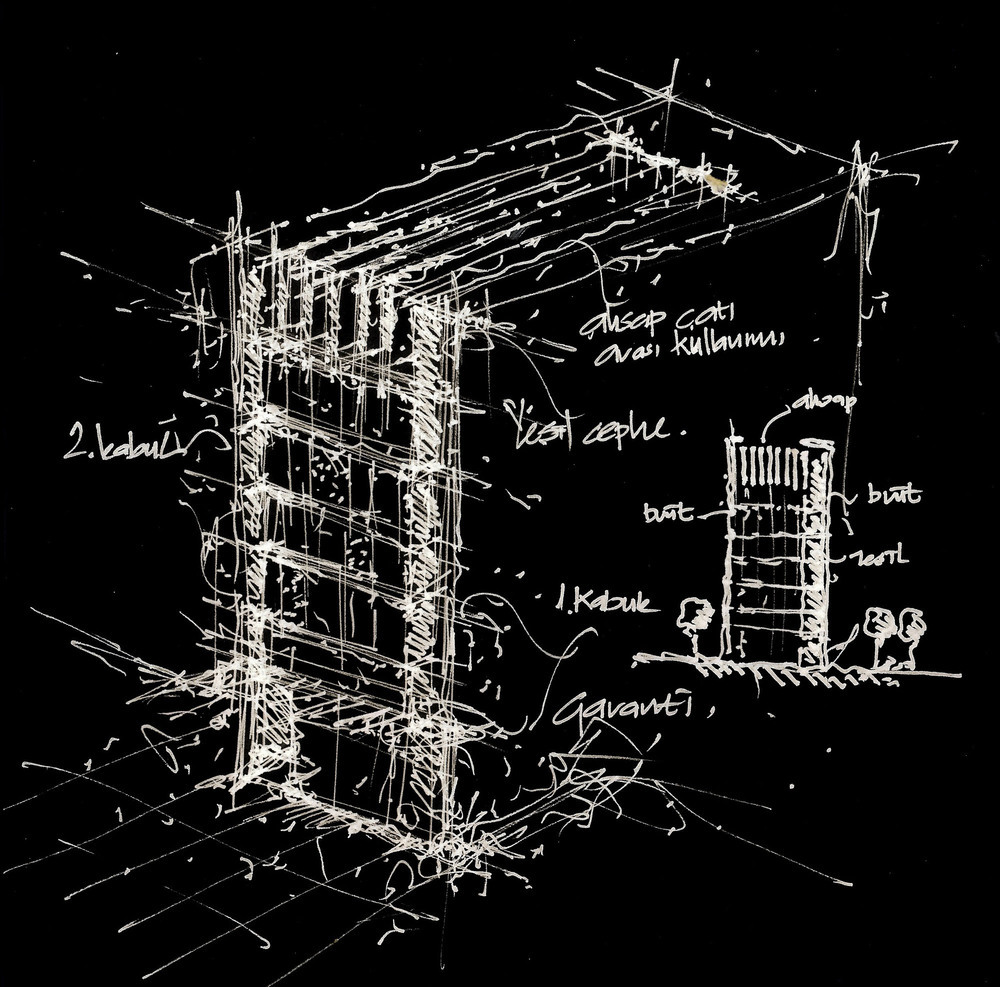 ahşap çatı
arası kullanımı
Yeşil cephe.
2.kabuk
ahşap
brüt
brüt
yeşil
1.Kabuk
Garanti,